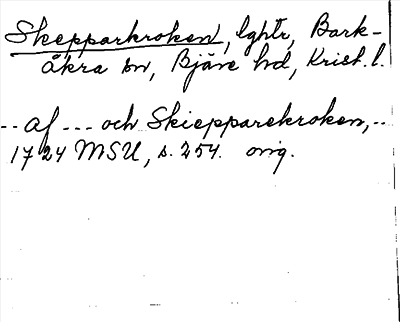 Skepparkroken, lghtr, Bark-
åkra sn, Bjäre hd, Krist. l.
-- af --- och Skiepparekroken, --
1724 MSU, s. 254. orig.